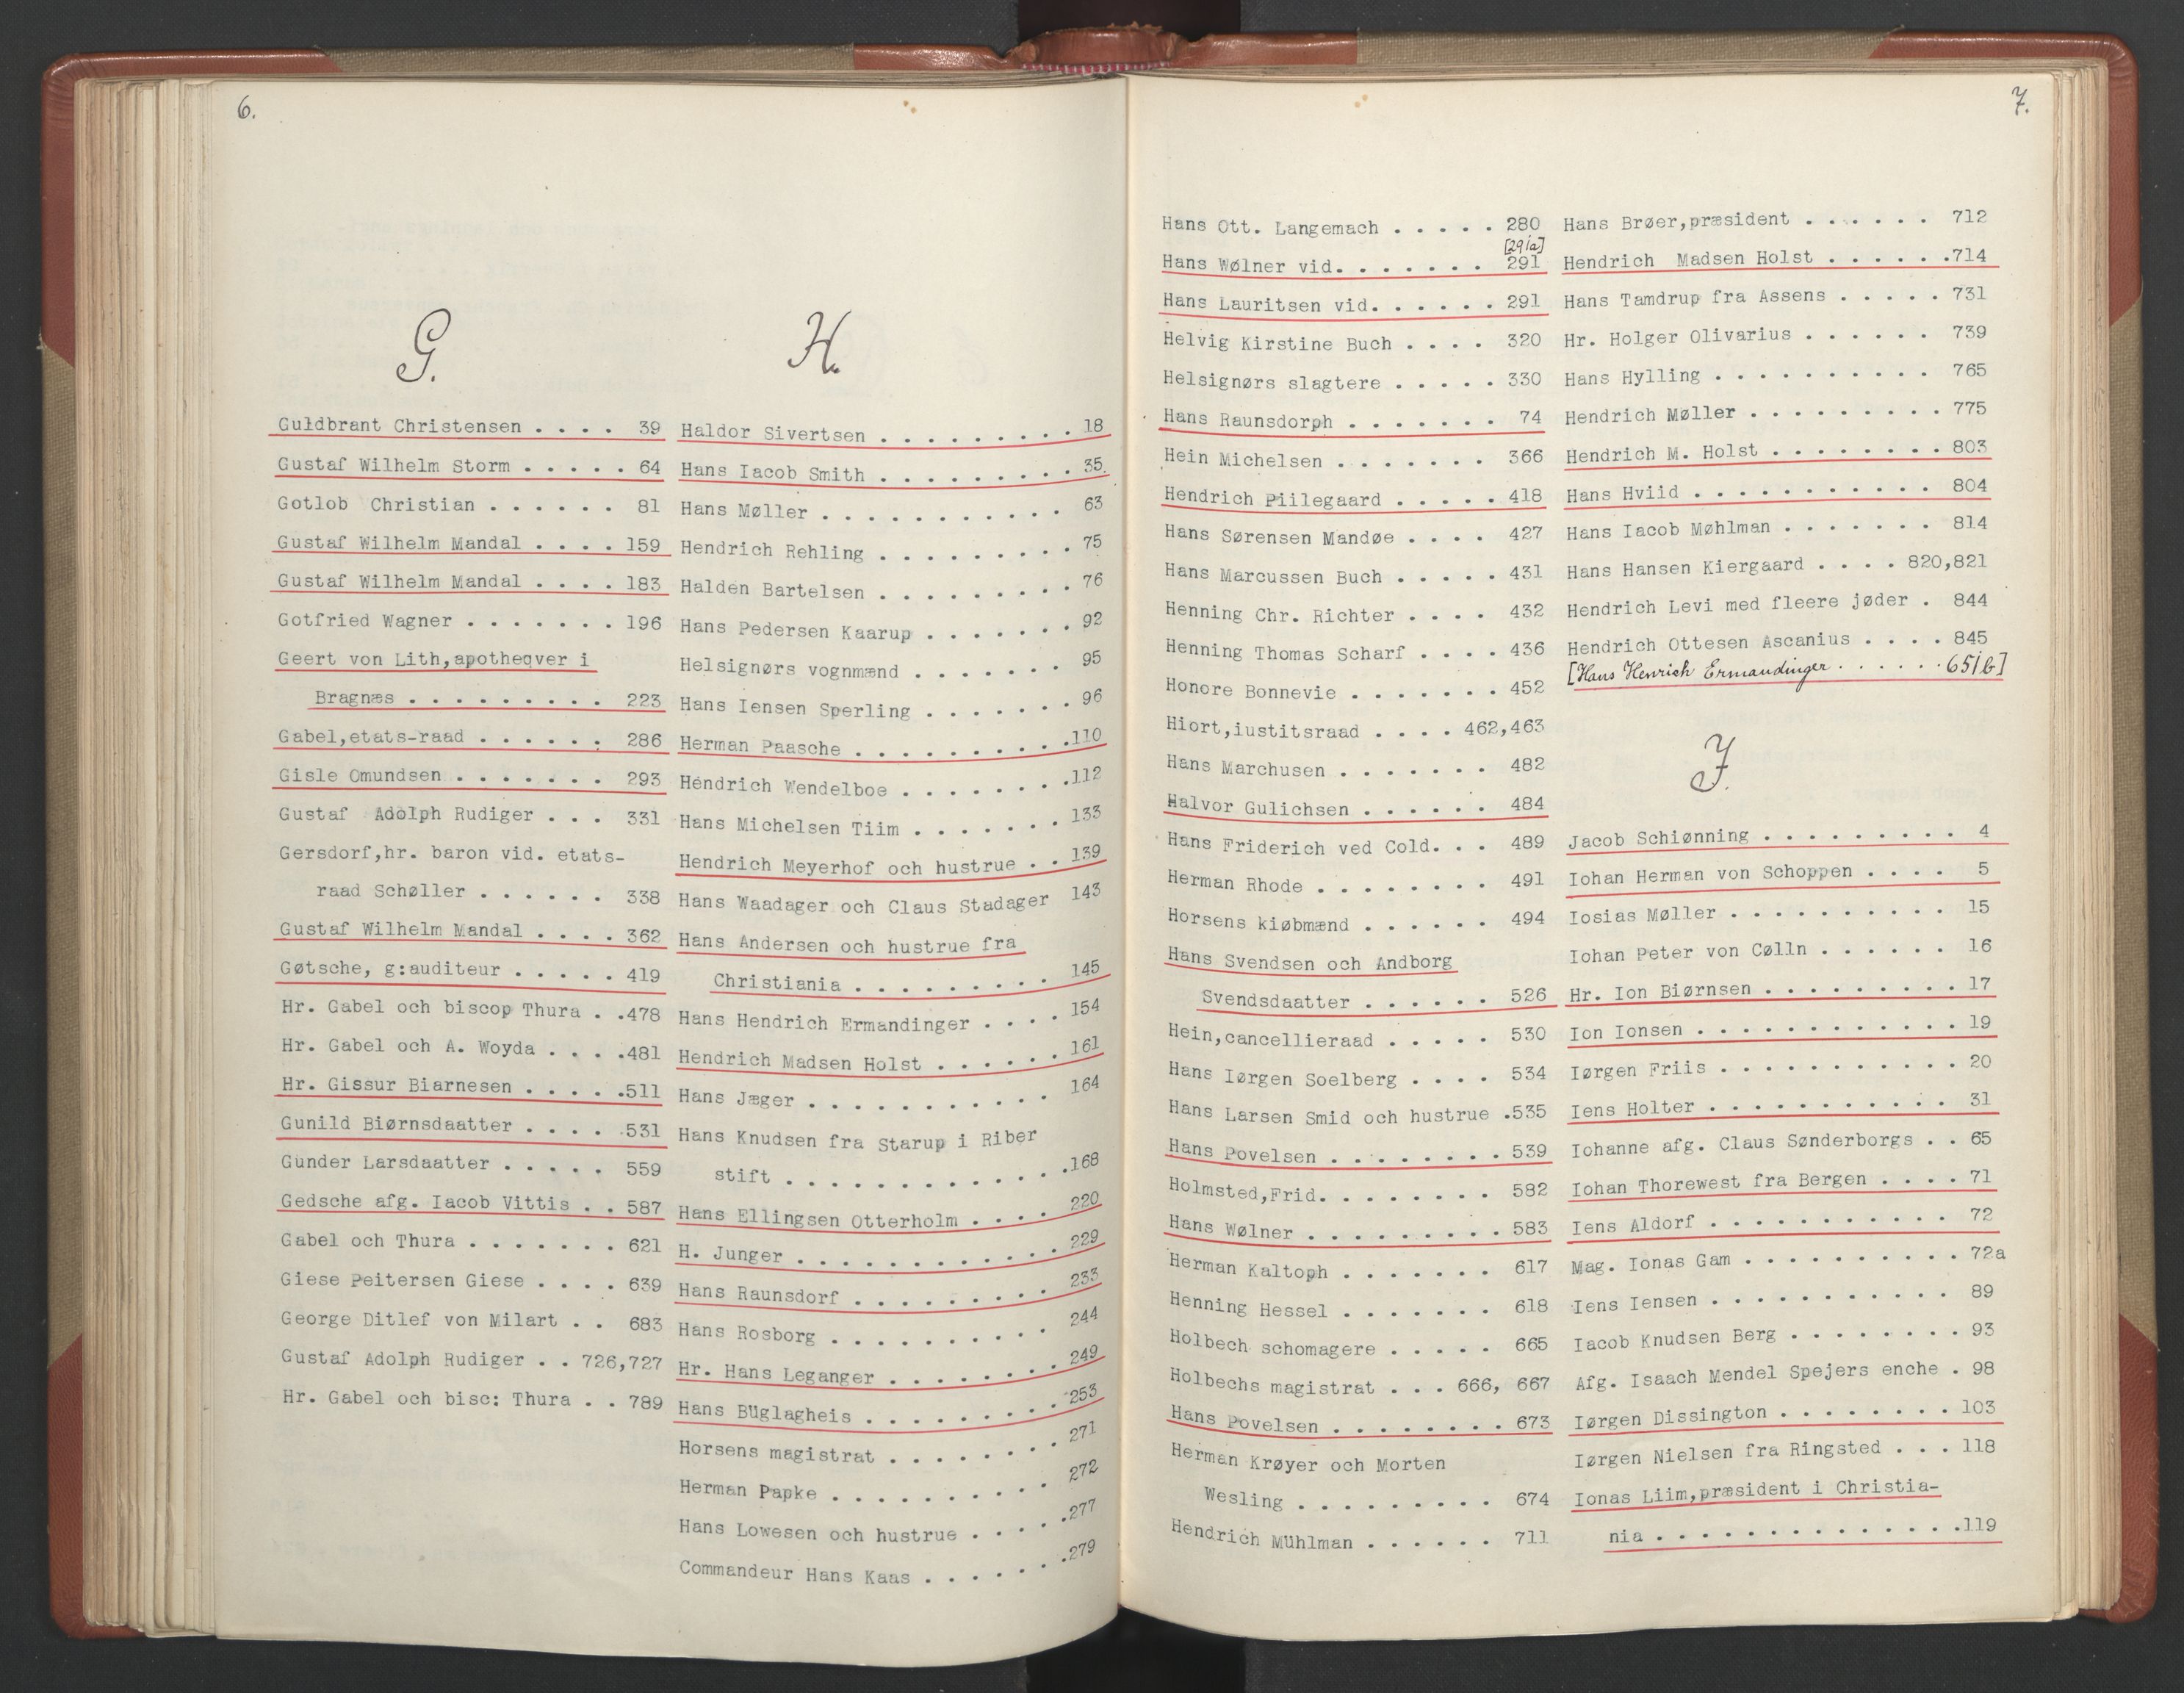 6.
G.
Guldbrant Christensen . . . . 39
Gustaf Wilhelm Storm . . . . . 64
Gotlob Christian . . . . . . 81
Gustaf Wilhelm Mandal . . . . 159
Gustaf Wilhelm Mandal . . . . 183
Gotfried Wagner . . . . . . . 196
Geert von Lith,apotheqver i
Bragnæs . . . . . . . . . 223
Gabel,etats-raad . . . . . . 286
Gisle Omundsen . . . . . . . 293
Gustaf Adolph Rudiger . . . 331
Gersdorf,hr. baron vid. etats-
raad Schøller . . . . . . 338
Gustaf Wilhelm Mandal . . . . 362
Gøtsche, g:auditeur . . . . . 419
Hr. Gabel och biscop Thura . .478
Hr. Gabel och A. Woyda . . . .481
Hr. Gissur Biarnesen . . . . .511
Gunild Biørnsdaatter . . . . .531
Gunder Larsdaatter . . . . . 559
Gedsche afg. Iacob Vittis . . 587
Gabel och Thura . . . . . . . 621
Giese Peitersen Giese . . . . 639
George Ditlef von Milart . . 683
Gustaf Adolph Rudiger . . 726,727
Hr. Gabel och bisc: Thura . . 789
H.
Haldor Sivertsen . . . . . . . . . 18
Hans Iacob Smith . . . . . . . . . 35.
Hans Møller . . . . . . . . . . . 63
Hendrich Rehling . . . . . . . . . 75
Halden Bartelsen . . . . . . . . . 76
Hans Pedersen Kaarup . . . . . . . 92
Helsignørs vognmænd . . . . . . . 95
Hans Iensen Sperling . . . . . . . 96
Herman Paasche . . . . . . . . . .110
Hendrich Wendelboe . . . . . . . .112
Hans Michelsen Tiim . . . . . . . 133
Hendrich Meyerhof och hustrue . . 139
Hans Waadager och Claus Stadager 143
Hans Andersen och hustrue fra
Christiania . . . . . . . . . 145
Hans Hendrich Ermandinger . . . . 154
Hendrich Madsen Holst . . . . . . 161
Hans Jæger . . . . . . . . . . . 164
Hans Knudsen fra Starup i Riber
stift . . . . . . . . . . . . .168
Hans Ellingsen Otterholm . . . . 220
H. Junger . . . . . . . . . . . . 229
Hans Raunsdorf . . . . . . . . . 233
Hans Rosborg . . . . . . . . . . 244
Hr. Hans Leganger . . . . . . . . 249
Hans Büglagheis . . . . . . . . . 253
Horsens magistrat . . . . . . . . 271
Herman Papke . . . . . . . . . . 272
Hans Lowesen och hustrue . . . . .277
Commandeur Hans Kaas . . . . . . .279
7.
Hans Ott. Langemach . . . . . 280
[291a]
Hans Wølner vid. . . . . . . 291
Hans Lauritsen vid. . . . . . 291
Helvig Kirstine Buch . . . . 320
Helsignørs slagtere . . . . . 330
Hans Raunsdorph . . . . . . . 74
Hein Michelsen . . . . . . . 366
Hendrich Piilegaard . . . . . 418
Hans Sørensen Mandøe . . . . 427
Hans Marcussen Buch . . . . . 431
Henning Chr. Richter . . . . 432
Henning Thomas Scharf . . . . 436
Honore Bonnevie . . . . . . . 452
Hiort,iustitsraad . . . . 462,463
Hans Marchusen . . . . . . . 482
Halvor Gulichsen . . . . . . 484
Hans Friderich ved Cold. . . 489
Herman Rhode . . . . . . . . 491
Horsens kiøbmænd . . . . . . 494
Hans Svendsen och Andborg
Svendsdaatter . . . . . . 526
Hein,cancellieraad . . . . . 530
Hans Iørgen Soelberg . . . . 534
Hans Larsen Smid och hustrue .535
Hans Povelsen . . . . . . . . 539
Holmsted,Frid. . . . . . . . 582
Hans Wølner . . . . . . . . . 583
Herman Kaltoph . . . . . . . 617
Henning Hessel . . . . . . . 618
Holbech schomagere . . . . . 665
Holbechs magistrat . . . 666, 667
Hans Povelsen . . . . . . . . 673
Herman Krøyer och Morten
Wesling . . . . . . . . . 674
Hendrich Mühlman . . . . . . 711
Hans Brøer,præsident . . . . . . 712
Hendrich Madsen Holst . . . . . .714
Hans Tamdrup fra Assens . . . . . 731
Hr. Holger Olivarius . . . . . . 739
Hans Hylling . . . . . . . . . . 765
Hendrich Møller . . . . . . . . . 775
Hendrich M. Holst . . . . . . . . 803
Hans Hviid . . . . . . . . . . . 804
Hans Iacob Møhlman . . . . . . . 814
Hans Hansen Kiergaard . . . . 820,821
Hendrich Levi med fleere jøder . 844
Hendrich Ottesen Ascanius . . . . 845
[Hans Henrich Ermandinger . . . . . . 651b]
J.
Jacob Schiønning . . . . . . . . . 4
Iohan Herman von Schoppen . . . . 5
Iosias Møller . . . . . . . . . . 15
Iohan Peter von Cølln . . . . . . 16
Hr. Ion Biørnsen . . . . . . . . . 17
Ion Ionsen . . . . . . . . . . . . 19
Iørgen Friis . . . . . . . . . . . 20
Iens Holter . . . . . . . . . . . 31
Iohanne afg. Claus Sønderborgs . . 65
Iohan Thorewest fra Bergen . . . . 71
Iens Aldorf . . . . . . . . . . . 72
Mag. Ionas Gam . . . . . . . . . . 72a
Iens Iensen . . . . . . . . . . . 89
Iacob Knudsen Berg . . . . . . . . 93
Afg. Isaach Mendel Spejers enche . 98
Iørgen Dissington . . . . . . . . 103
Iørgen Nielsen fra Ringsted . . . 118
Ionas Liim,præsident i Christia-
nia . . . . . . . . . . . . . . .119